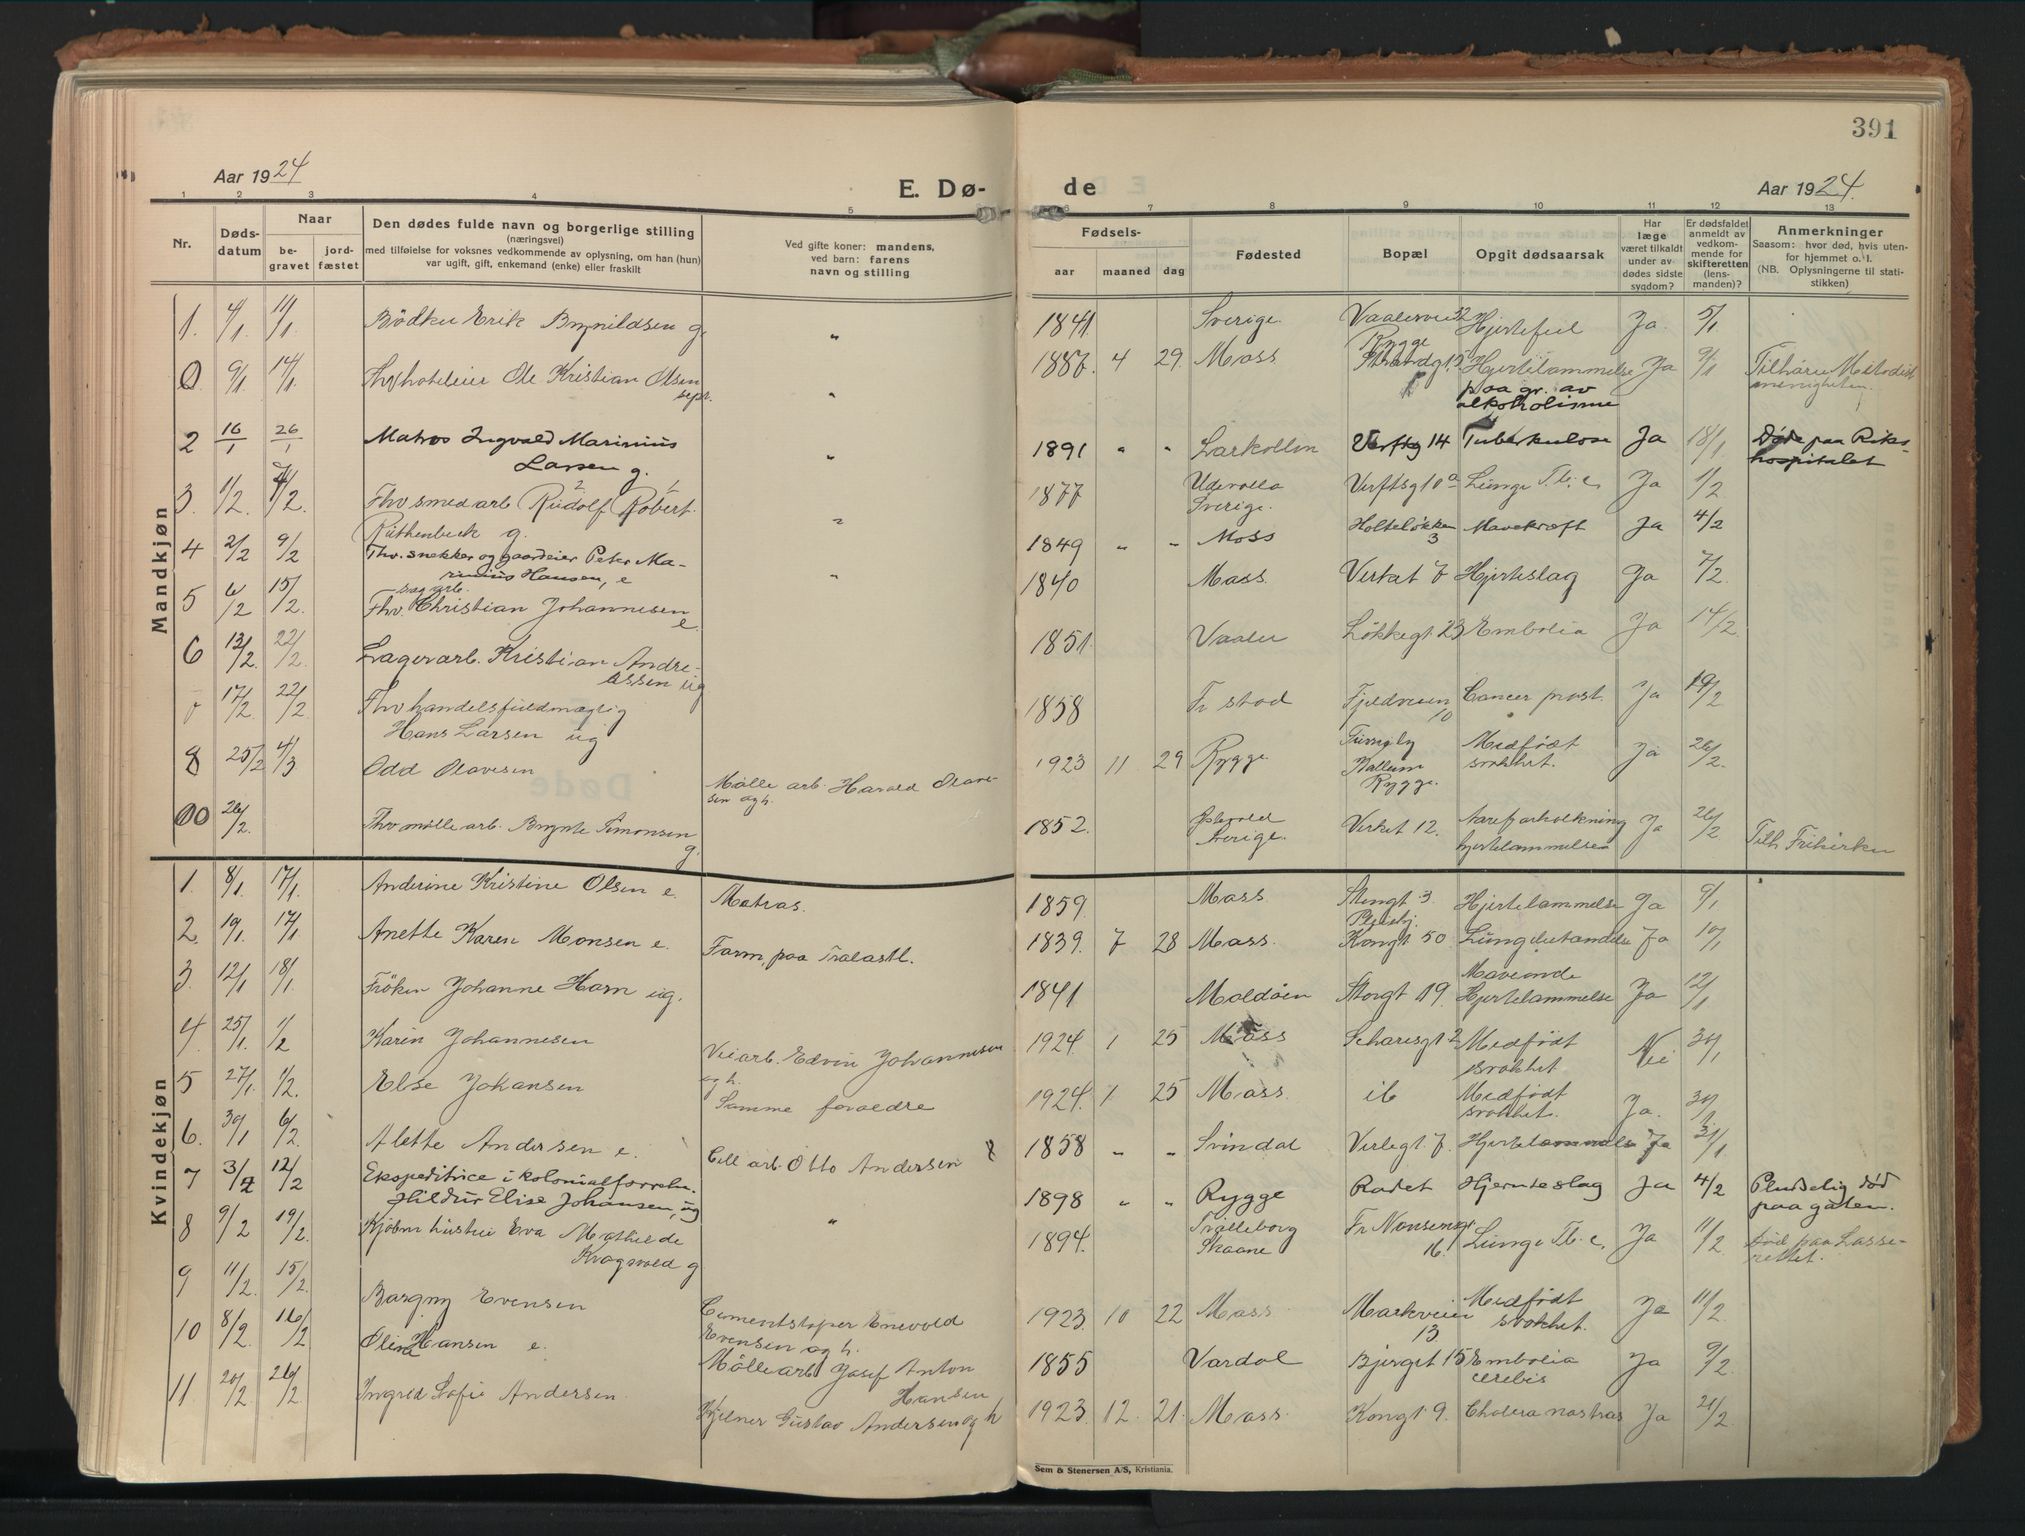 391
Aar 1924
E. Dø-
de
Aar 1924.
1 2 3 4 5 6 7 8 9 10 11 12 13
Nr.
Døds-
datum
Naar
be-
gravet
jord-
fæstet
Den dødes fulde navn og borgerlige stilling
(næringsvei)
med tilføielse for voksnes vedkommende av oplysning, om han (hun)
var ugift, gift, enkemand (enke) eller fraskilt
Ved gifte koner: mandens,
ved barn: farens
navn og stilling
Fødsels-
aar
maaned
dag
Fødested
Bopæl
Opgit dødsaarsak
Har
læge
været tilkaldt
under av
dødes sidste
sygdom?
Er dødsfaldet
anmeldt av
vedkom-
mende for
skifteretten
(lens-
manden)?
Anmerkninger
Saasom: hvor død, hvis uten-
for hjemmet o. l.
(NB. Oplysningerne til stati-
stikken)
Mandkjøn
1. 4/1 11/1 Bødker Erik Brynildsen g. " 1841 Sverige. Vaalerveien 32 Rygge Hjertefeil Ja. 5/1
0 9/1 14/1 Fhv hoteleier Ole Kristian Olsen " 1887. 4 29. Moss Hjertelammelse Ja 9/1 Tilhører Metodist
sepr. paa gr. av menigheten.
alkoholisme
2 16/1 26/1 Matros Ingvald Marinius " 1891 " " Larkollen Verftg 14 Tuberkulose Ja 18/1 Døde paa Riks-
Larsen g. hospitalet
3. 1/2. 7/2. Fhv smed arb Rudolf Robert " 1877 Udevalla Verftsg 10a Lunge T.b.c. Ja 1/2
Ruthenbeck g. Sverige.
4 2/2 9/2 Thv. snekker og gaardeier Peter Ma- " 1849 " " Moss Holteløkken Mavekræft Ja 4/2
rinius Hansen, e 3
5 6/2 15/2. Sag arb.
Fhv. Christian Johannesen 1840 Moss. Verket 7 Hjerteslag Ja 7/2.
e.
6 13/2. 22/2. Lagerarb. Kristian Andre- 1851. Vaaler Løkkegt 23 Embolia Ja 14/2.
assen ug
17/2. 22/2. Fhv handelsfuldmægtig 1858 Fr stad Fjeldveien Cancer prost. Ja 19/2
Hans Larsen ug 10
8 25/2 4/3 Odd Olavesen Mølle arb. Harald Olave- 1923 11 29 Rygge Medfødt Ja 26/2.
sen og h. Rygge. svakhet.
00 26/2. Fhv mølle arb. Brynte Simonsen 1852. Sverige. Verket 12. Aareforkalkning Ja 26/2 Tilh Frikirken
g. hjertelammelse
Kvindekjøn
1. 8/1. 17/1. Anderine Kristine Olsen e. Matros. 1859. Moss. Storgt 3. Hjertelammelse Ja 9/1
2. 10/1. 17/1 Anette Karen Monsen e. Form. paa Trælastt. 1839. 7 28 Moss. Pleiehj. Kongt 50 Lungebetændelse Ja 10/1
3. 12/1 18/1 Frøken Johanne Horn ug. 1841 Moldøen Storgt 19. Maveonde Hjertelammelse Ja 12/1
4. 25/1. 1/2 Karin Johannesen Veiarb. Edvin Johannesen 1924 1 25 Moss Medfødt Nei 30/1
og h. svakhet
5 27/1. 1/2. Else Johansen Samme forældre 1924. 1 25 Moss. ib Medfødt Ja. 30/1
svakhet.
6. 30/1 6/2 Alette Andersen e. Cell arb. Otto Andersen 1858 " " Svindal Verlegt 7. Hjertelammelse Ja 31/1
7 3/2 12/2 Ekspeditrice i kolonialforretn. 1898 " " Rygge Rådet Hjerneslag Ja 4/2 Pludselig død
Hildur Elise Johansen, ug paa gaten.
8 9/2 19/2. Kjøbm hustru Eva Mathilde " 1894. Trælleborg Fr Nansensgt Lunge Tb.c. Ja 11/2 Død paa Lasse-
Krogsvold g Skaane 16. rettet.
9 11/2. 15/2. Bargny Evensen Cementstøper Enevold 1923. 10 22 Moss Markveien Medfødt Ja 11/2.
Evensen og h. 13. svakhet.
10 8/2. 16/2 Oline Hansen e. Møllearb Josef Anton 1855 Vardal Bjergt 15 Embolia Ja 9/2.
Hansen cerebis
11 20/2. 26/2 Ingrid Sofie Andersen. Kjelner Gustav Andersen og h 1923 12. 21. Moss. Kongt 9. Cholera nostras Ja 21/2.
Sem & Stenersen A/S, Kristiania.